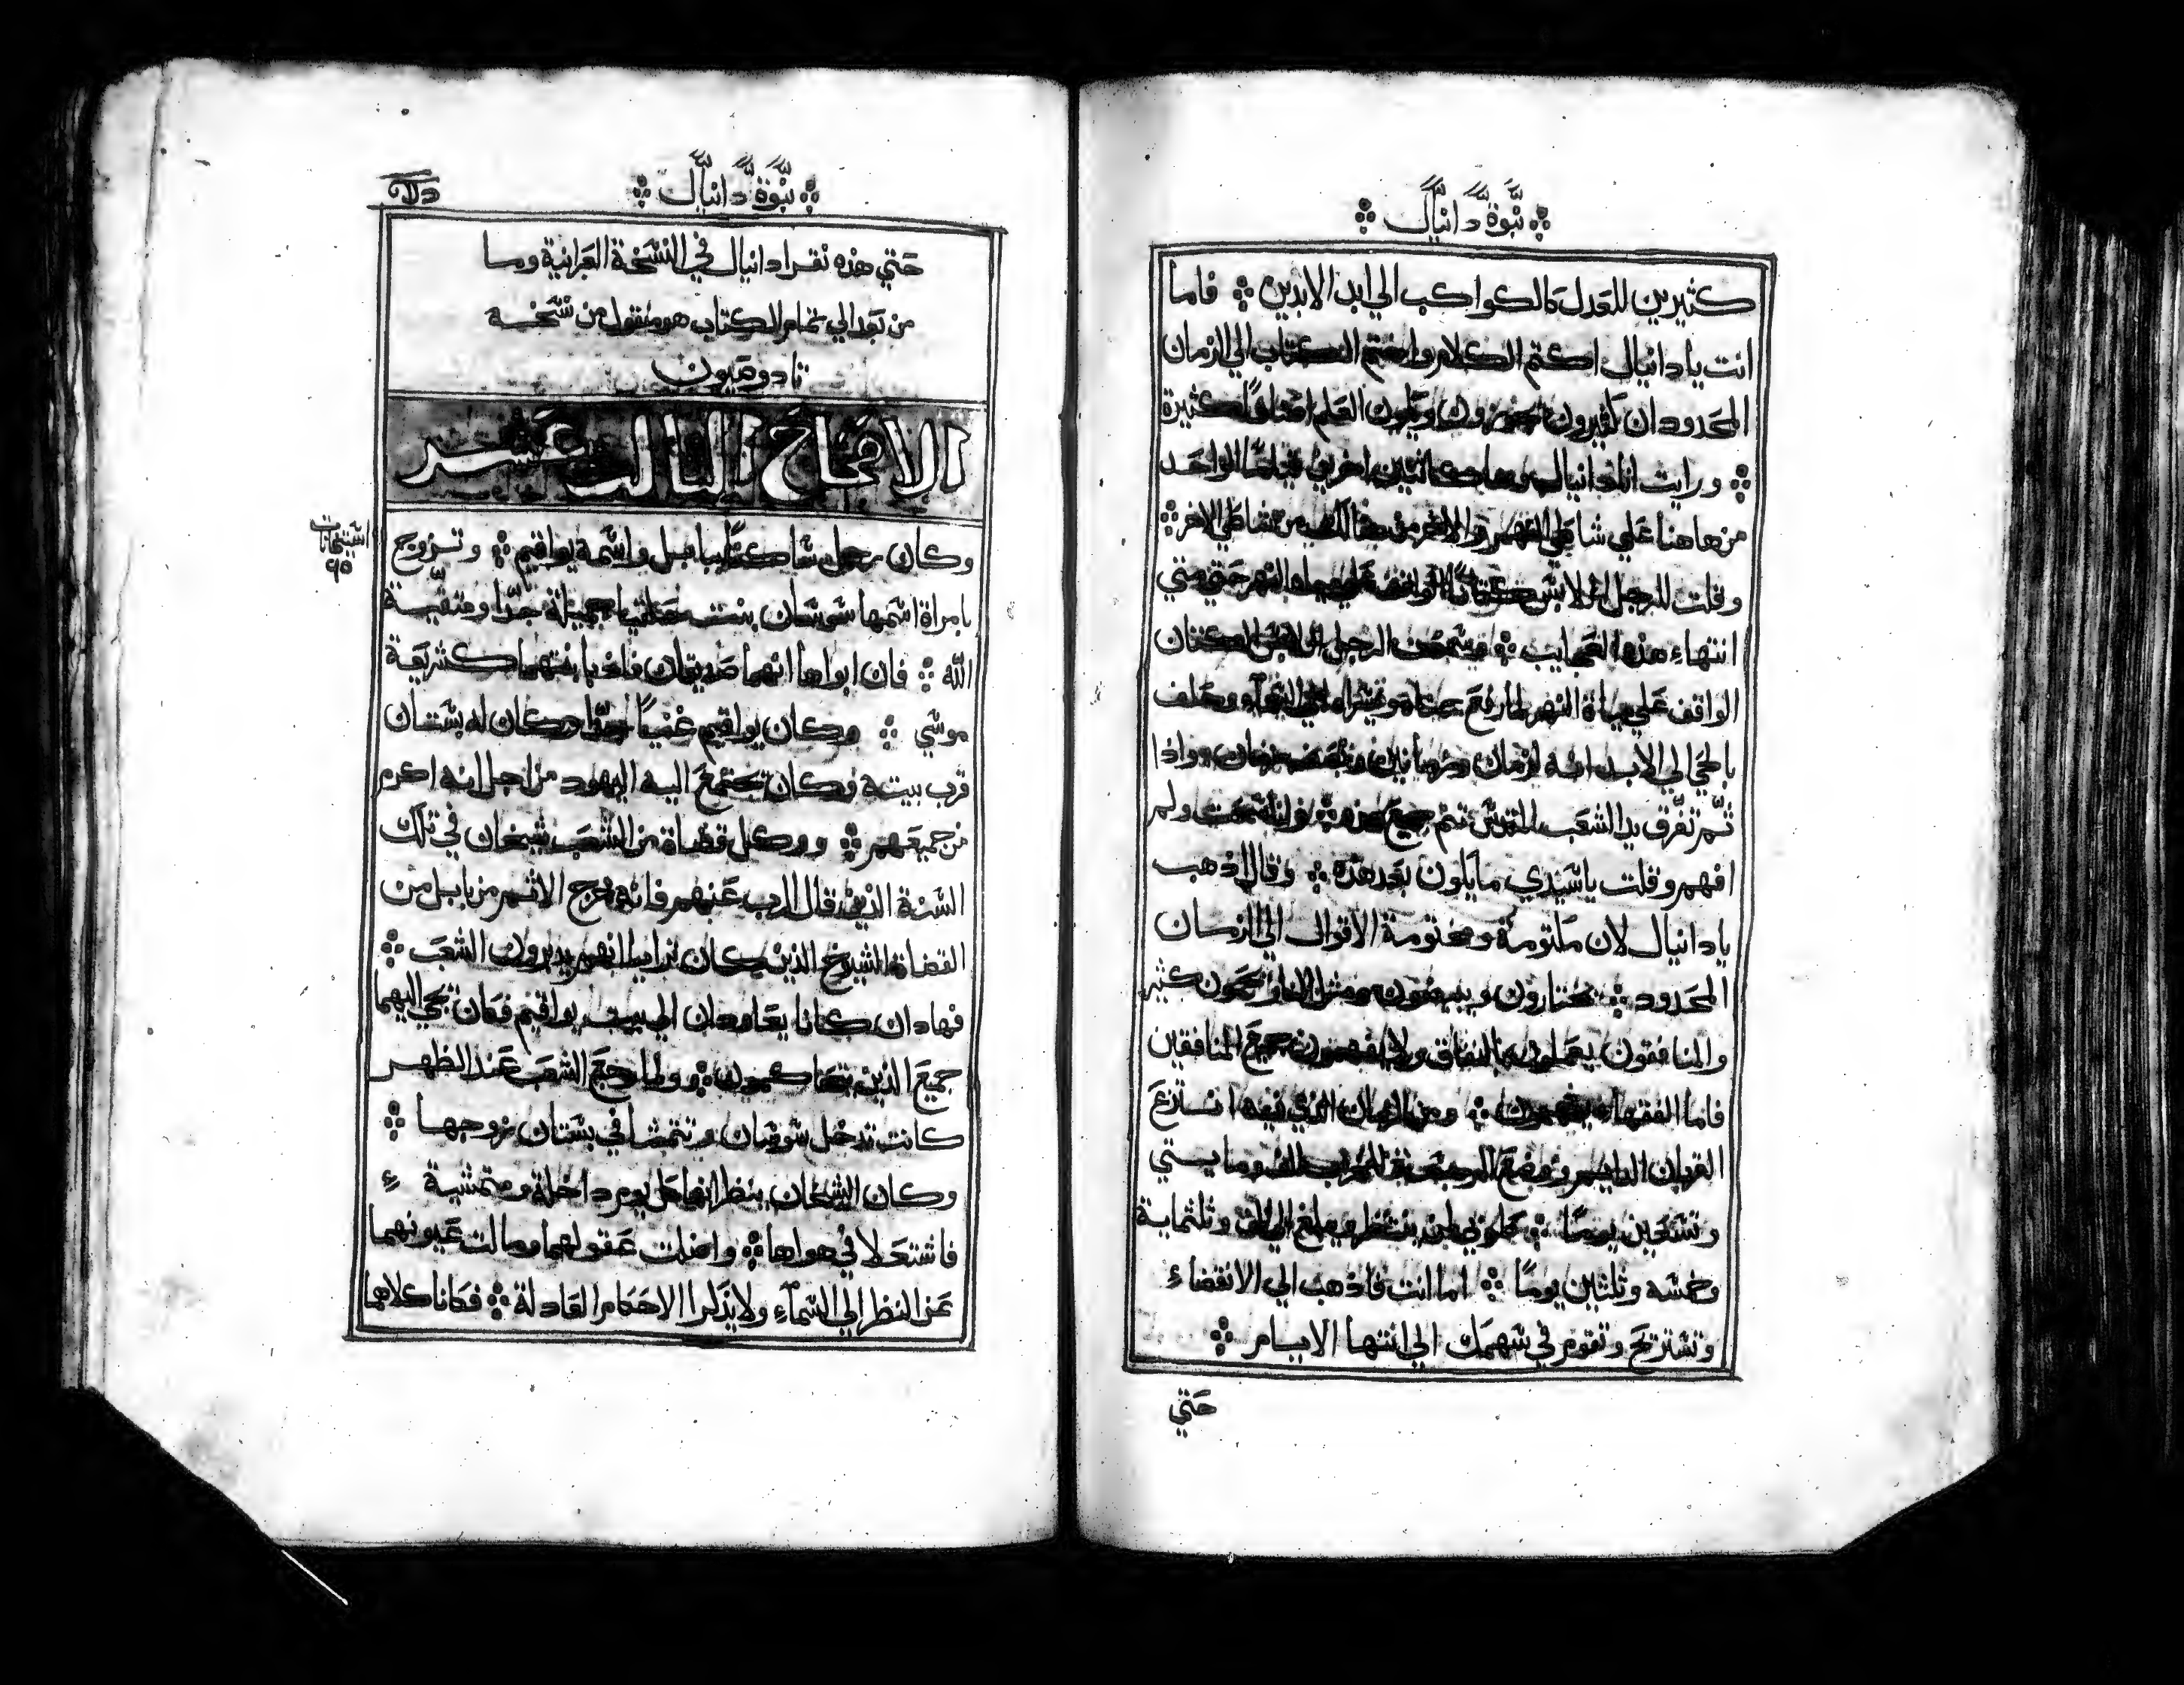 نبوة دانيال
كثيرين للعدل كالكواكب الي ابد الابدين فاما
انت يا دانيال اكتم الكلام واختم الكتاب الي الازمان
المحدود ان كثيرون يجوزون ويكون العلم اصنافًا كثيرة
ورايت انا دانيال وها كاثنين اخرين قياما الواحد
من هاهنا علي شاطي النهر والاخر من هنالك من شاطي الاخر
وقلت للرجل اللابس كتانًا الواقف علي مياه النهر حتي متي
انتهاء هذه العجايب وسمعت الرجل اللابس الكتان
الواقف علي مياة النهر لما رفع يمناه ويسراه الي السماء وحلف
بالحي الي الابد انه لزمان وزمانين ونصف زمان واذا
تم تفرق يد الشعب المقدس تتم جميع هذه وانا سمعت ولم
افهم وقلت يا سيدي ما يكون بعد هذه وقال اذهب
يا دانيال لان مكتومة ومختومة الاقوال الي الزمان
المحدود يختارون ويبيضون ومثل النار يمحون كثير
والمنافقون يعملون بالنفاق ولا يفهمون جميع المنافقين
فاما الفقهاء يفهمون ومن الزمان الذي فيه انتزع
القربان الدايم وتوضع الرجسة للخراب الف ومايتي
وتسعين يومًا طوبي لمن ينتظر ويبلغ الي الف وثلثماية
وخمسه وثلثين يومًا اما انت فاذهب الي الانقضاء
وتستريح وتقوم في سهمك الي انتها الايام
حتي
نبوة دانيال
حتي هذه نقرا دانيال في النسخة العبرانية وما
من بعد الي تمام الكتاب هو منقول من نسخة
تادوضيون
الافتتاح الثالث عشر
وكان رجل ساكنًا ببابل واسمه يواقيم وتزوج
بامراة اسمها سوسان بنت حلقيا جميلة جدًا ومتقية
الله فان ابواها انهما صديقان فادبا بنتهما كشريعة
موسي وكان يواقيم غنيًا جدًا وكان له بستان
قرب بيته وكان تجتمع اليه اليهود من اجل انه اكرم
من جميعهم ووكل قضاة من الشعب شيخان في تلك
السنة الذين قال الرب عنهم فانه خرج الاثم من بابل من
القضاة الشيوخ الذين كان يرايا انهم يدبرون الشعب
فهادان كانا يعاودان الي بيت يواقيم فكان تجي اليهما
جميع الذين يتحاكمون ولما رجع الشعب عند الظهر
كانت تدخل سوسان وتتمشا في بستان زوجها
وكان الشيخان ينظرانها كل يوم داخلة ومتمشية
فاشتعلا في هواها واضلت عقولهما ومالت عيونهما
عن النظر الي السماء ولا يذكرا الاحكام العادلة فكانا كلاهما